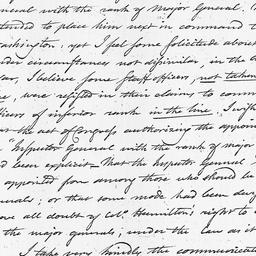 general with the rank of Major General,
tended to place him next in command
Washington: yet I feel some solicitude about
under circumstances not dissimilar, in the
war, I believe some staff officers, not taken
line, were resisted in their claims to comm
officers of inferior rank in the line. I wish
that the act of Congress authorizing the appoin
Inspector General with the rank of major
had been explicit — that the Inspector General
appointed from among those who should be
generals; or that some mode had been
remove all doubt of Colo. Hamilton's right to
the major generals; under the law as it
I take very kindly the communicati